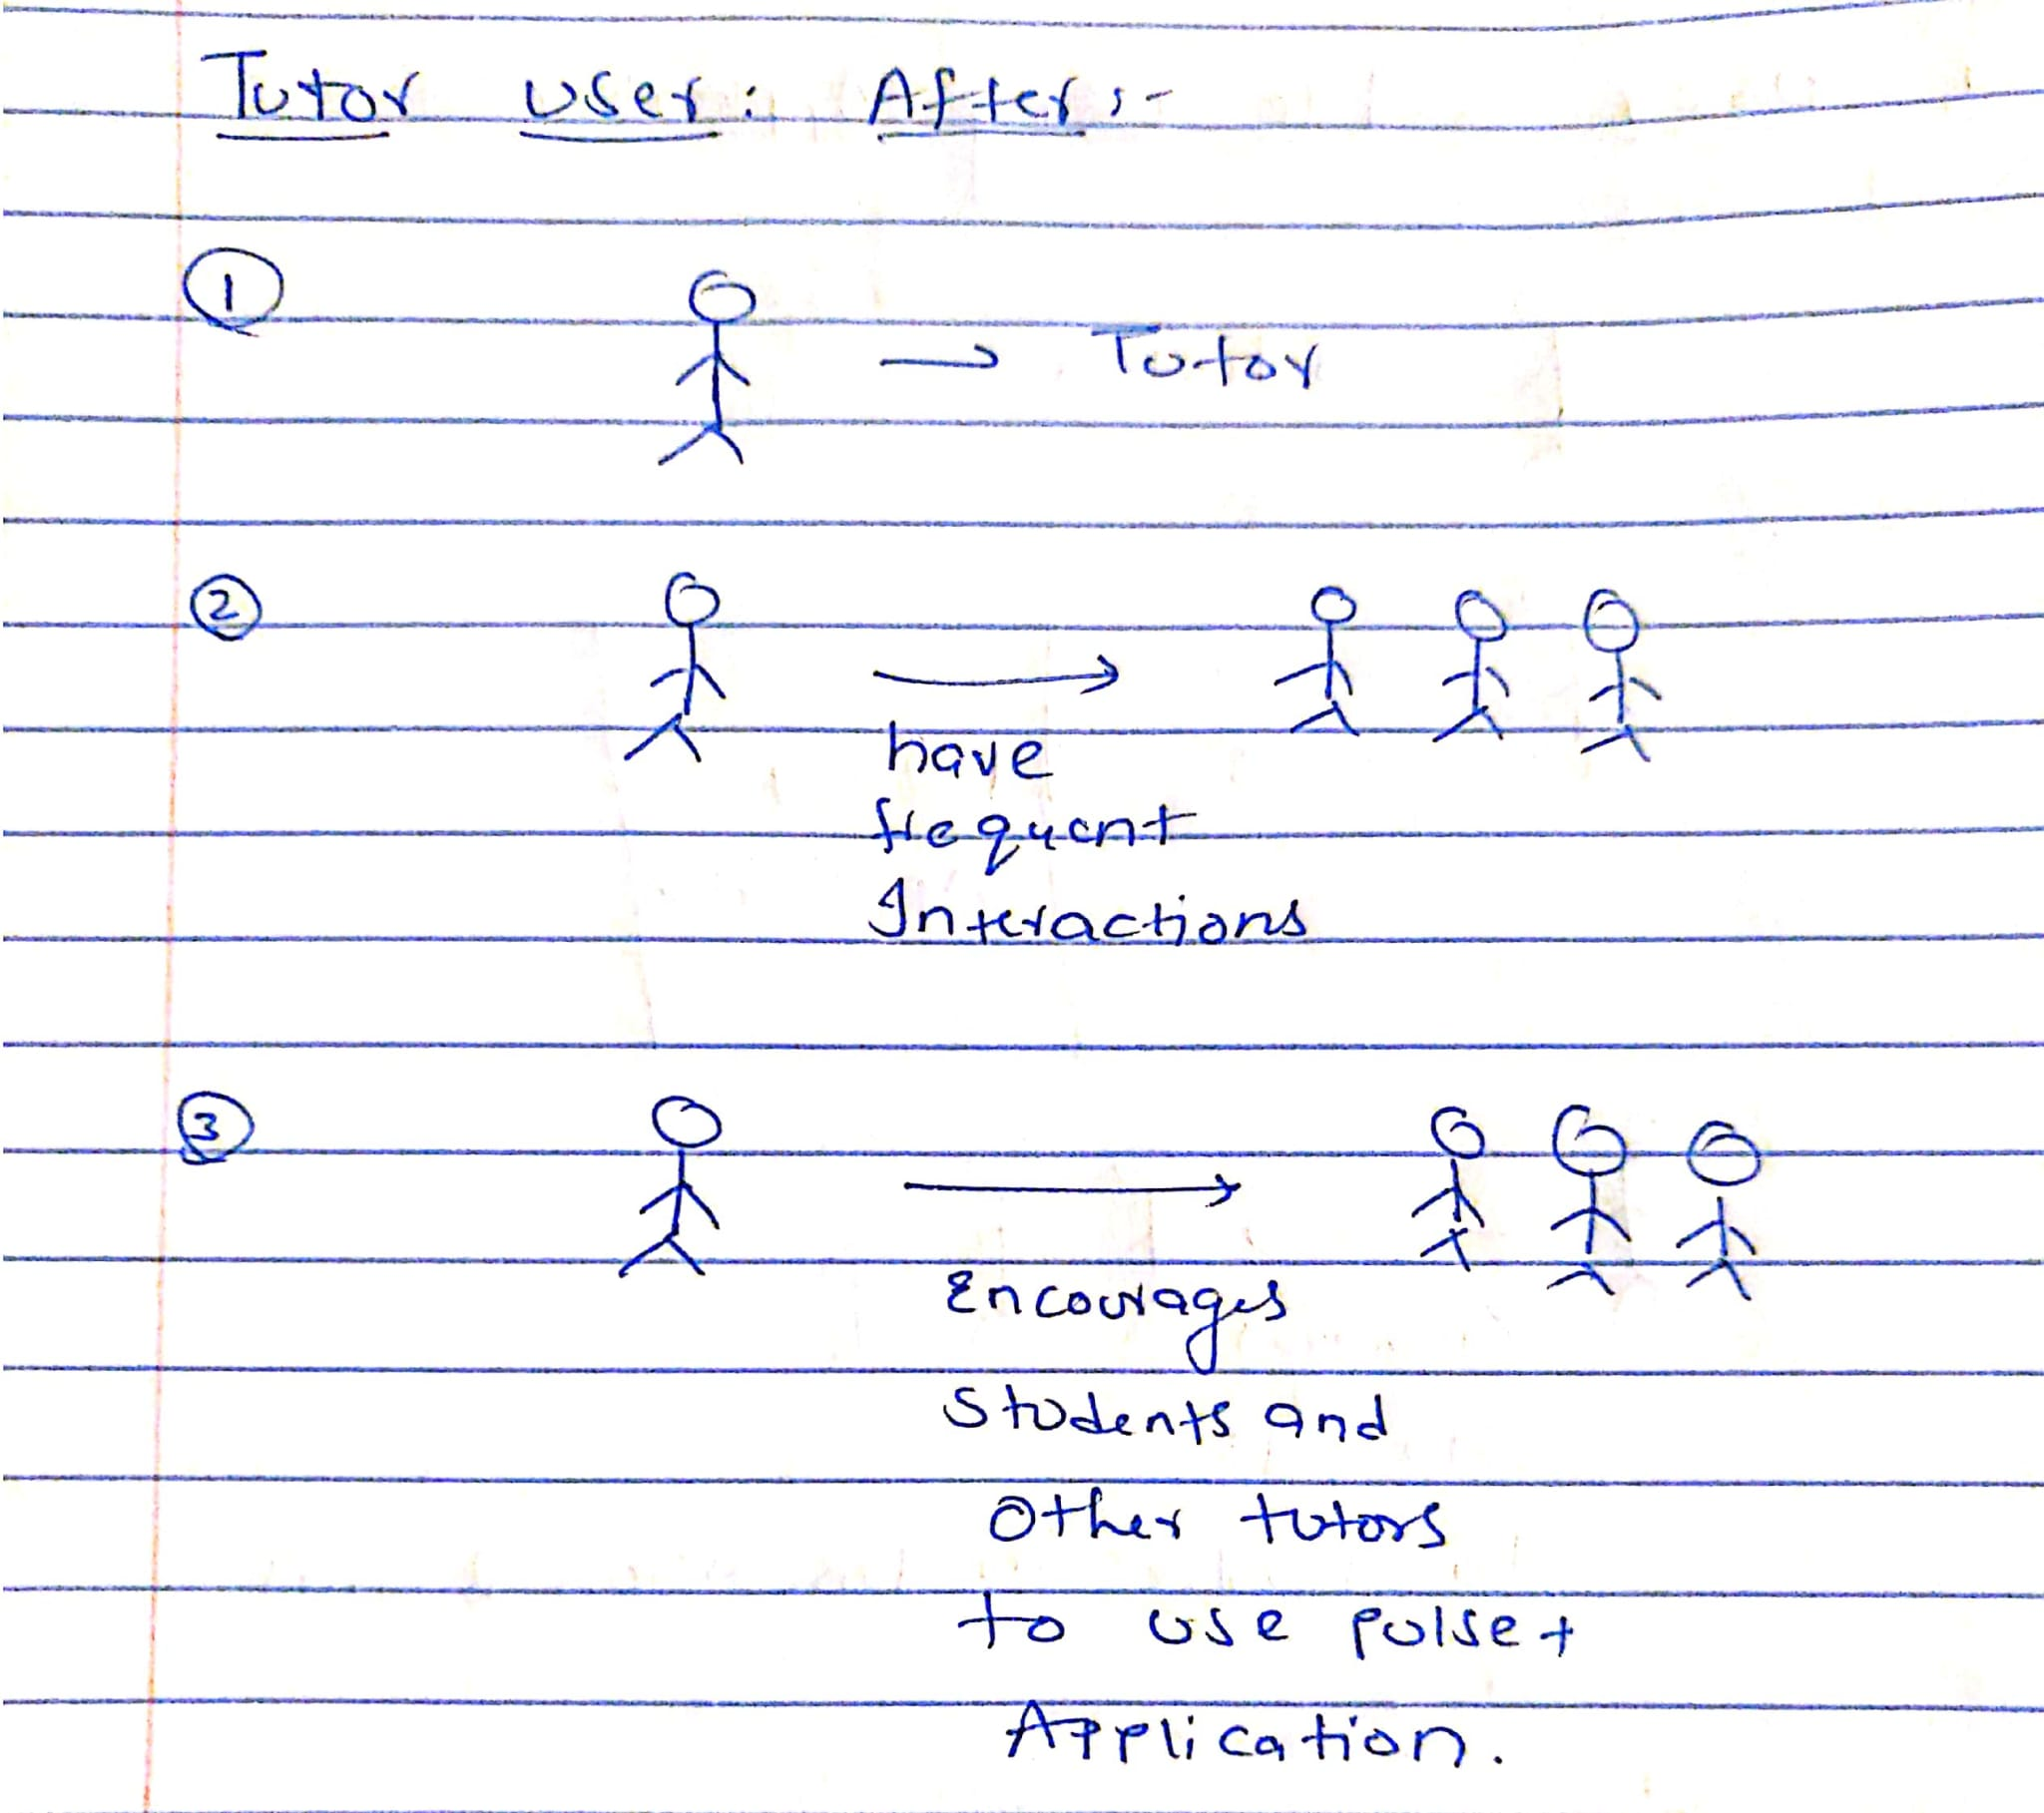 Tutor User: After:-
①
→ Tutor
②
have
frequent
Interactions
③
Encourages
Students and
Other tutors
to use pulse+
Application.